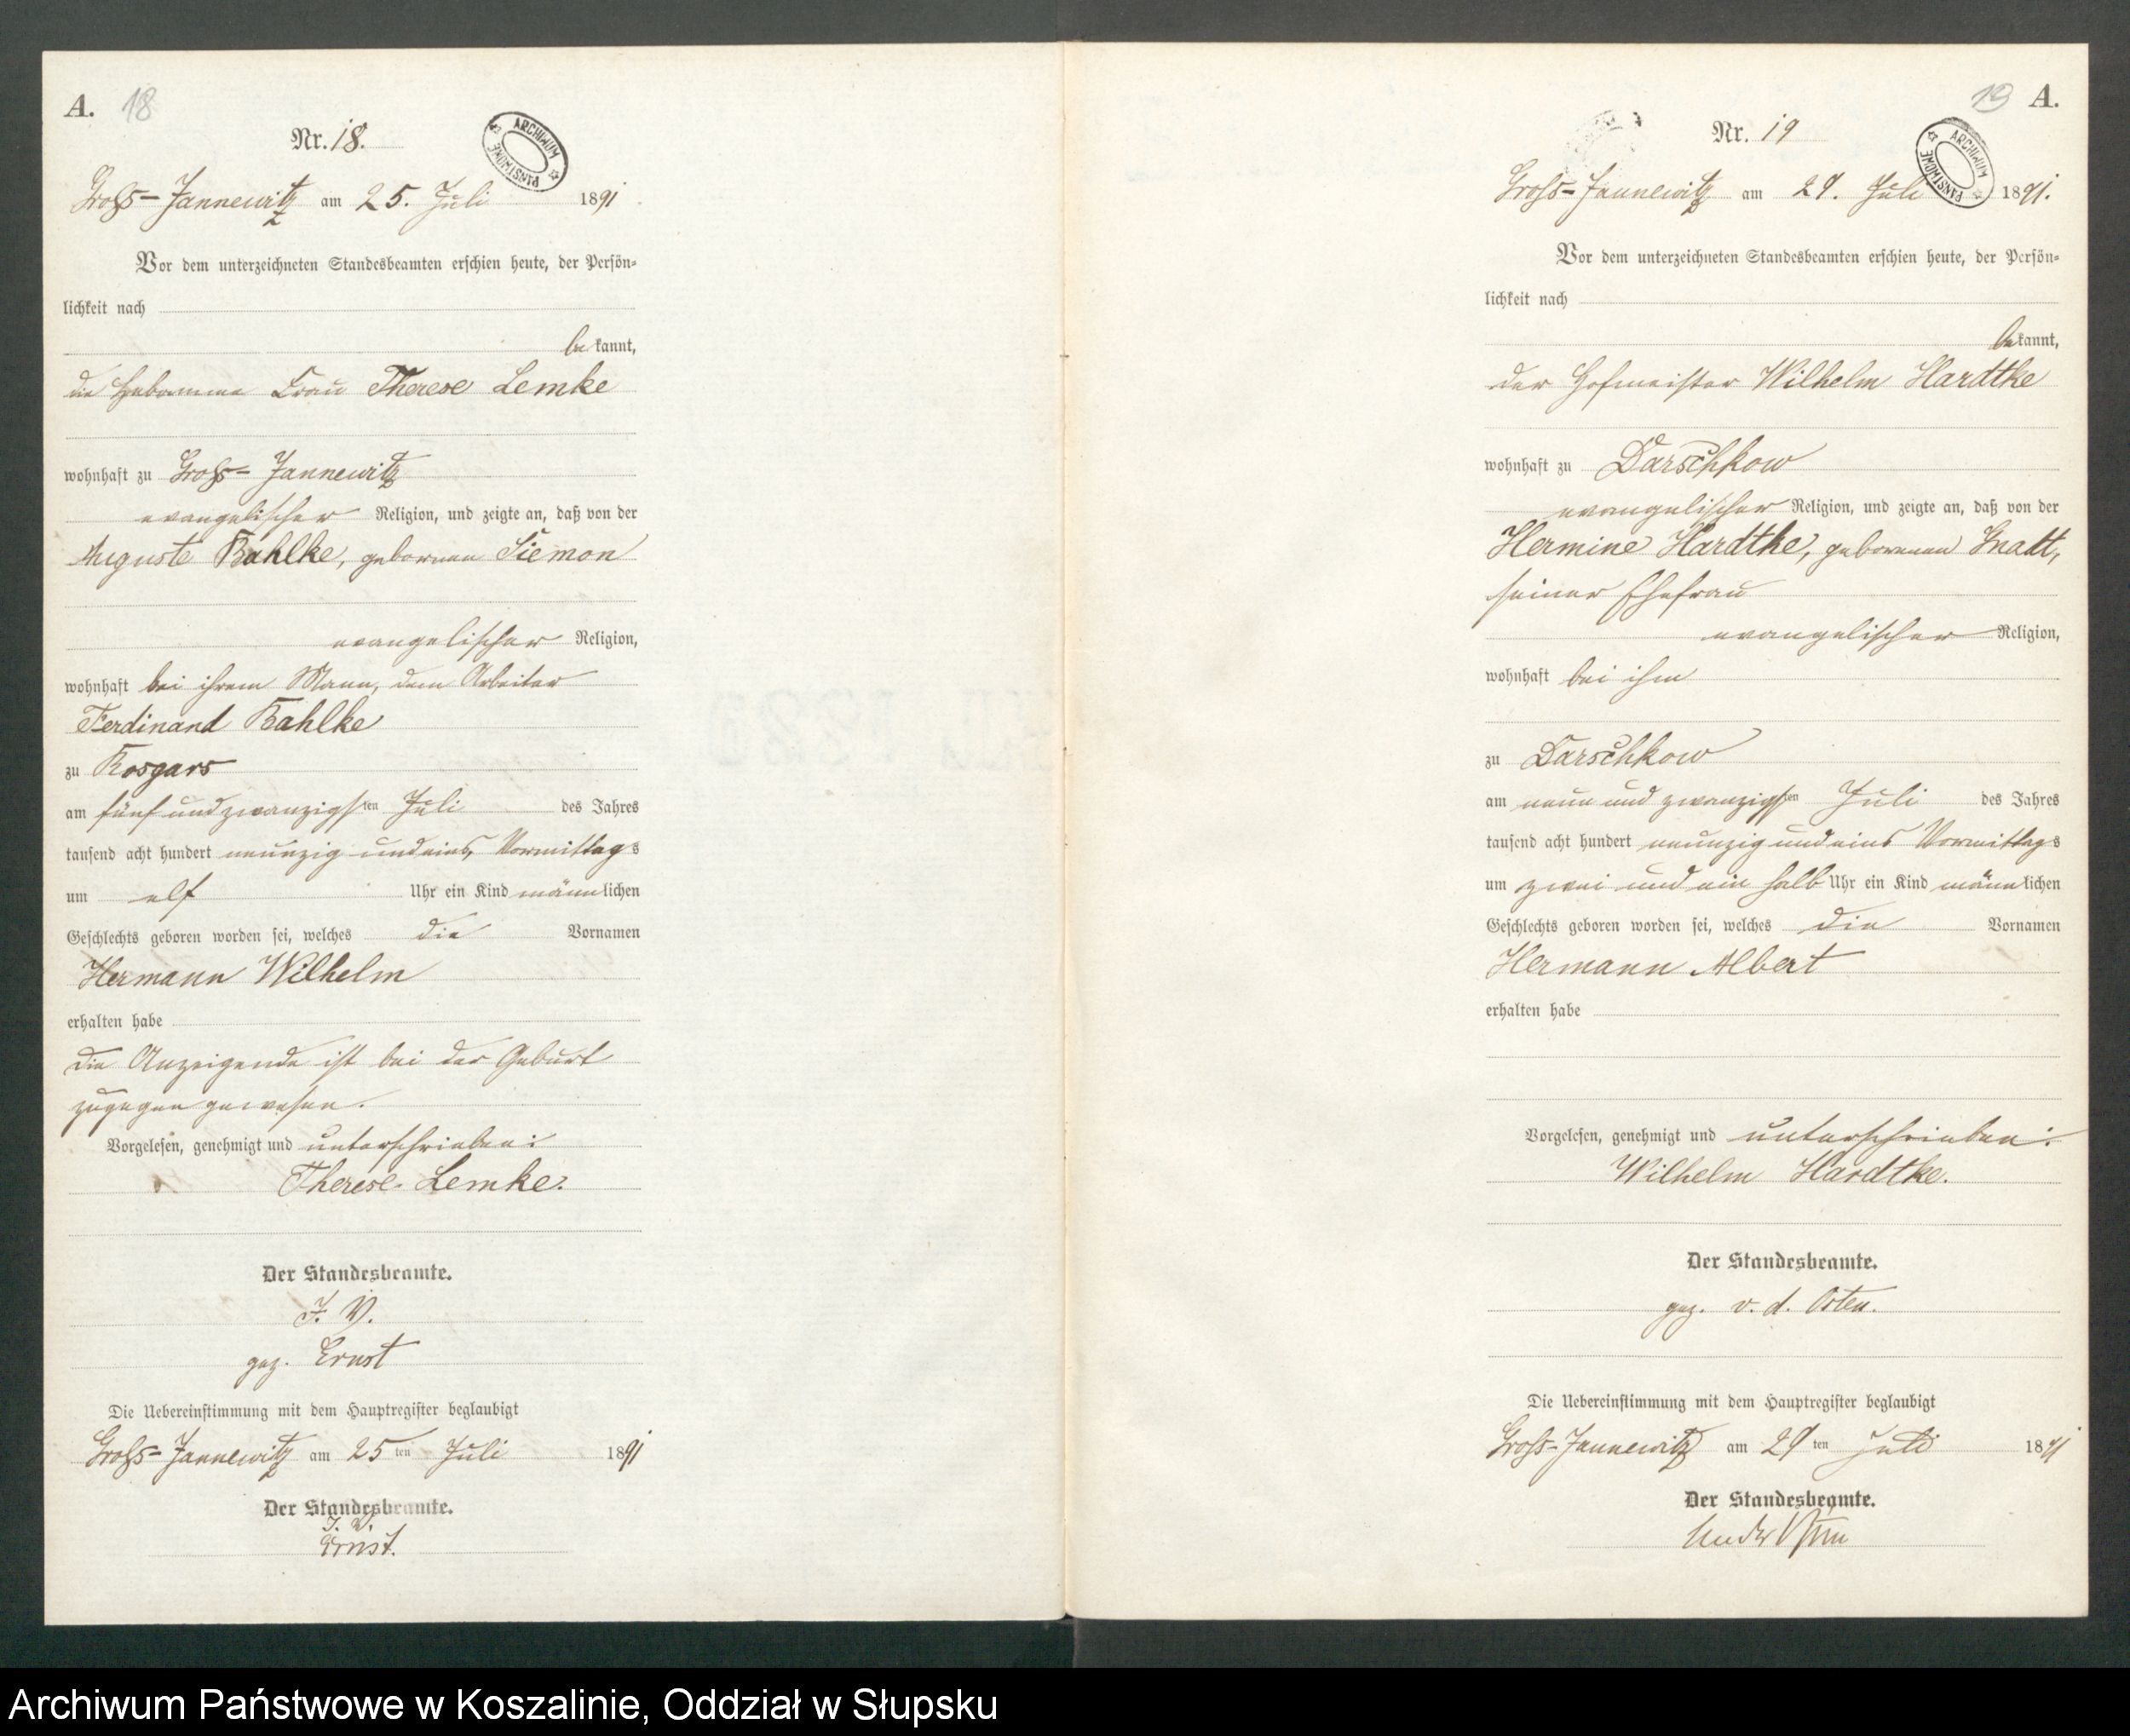 A. 18
Nr. 18.
ARCHIWUM PAŃSTWOWE
Groß-Jannewitz am 25. Juli 1891
Vor dem unterzeichneten Standesbeamten erschien heute, der Persön-
lichkeit nach
be kannt,
die Hebamme Frau Therese Lemke
wohnhaft zu Groß-Jannewitz
evangelischer Religion, und zeigte an, daß von der
Auguste Bahlke, gebornen Siemon
evangelischer Religion,
wohnhaft bei ihrem Mann, dem Arbeiter
Ferdinand Bahlke
zu Rosgars
am fünf und zwanzigsten Juli des Jahres
tausend acht hundert neunzig und eins, Vormittags
um elf Uhr ein Kind männlichen
Geschlechts geboren worden sei, welches die Vornamen
Hermann Wilhelm
erhalten habe
Die Anzeigende ist bei der Geburt
zugegen gewesen.
Vorgelesen, genehmigt und unterschrieben:
Therese Lemke.
Der Standesbeamte.
I. V.
gez. Ernst
Die Uebereinstimmung mit dem Hauptregister beglaubigt
Groß-Jannewitz am 25 ten Juli 1891
Der Standesbeamte.
I. V.
Ernst.
19 A.
Nr. 19
ARCHIWUM PAŃSTWOWE
Groß-Jannewitz am 29. Juli 1891.
Vor dem unterzeichneten Standesbeamten erschien heute, der Persön-
lichkeit nach
bekannt,
der Hofmeister Wilhelm Hardtke
wohnhaft zu Darschkow
evangelischer Religion, und zeigte an, daß von der
Hermine Hardtke, geborenen Gnatt,
seiner Ehefrau
evangelischer Religion,
wohnhaft bei ihm
zu Darschkow
am neun und zwanzigsten Juli des Jahres
tausend acht hundert neunzig und eins Vormittags
um zwei und ein halb Uhr ein Kind männlichen
Geschlechts geboren worden sei, welches die Vornamen
Hermann Albert
erhalten habe
Vorgelesen, genehmigt und unterschrieben:
Wilhelm Hardtke.
Der Standesbeamte.
gez. v. d. Osten.
Die Uebereinstimmung mit dem Hauptregister beglaubigt
Groß-Jannewitz am 29 ten Juli 1891
Der Standesbeamte.
Archiwum Państwowe w Koszalinie, Oddział w Słupsku